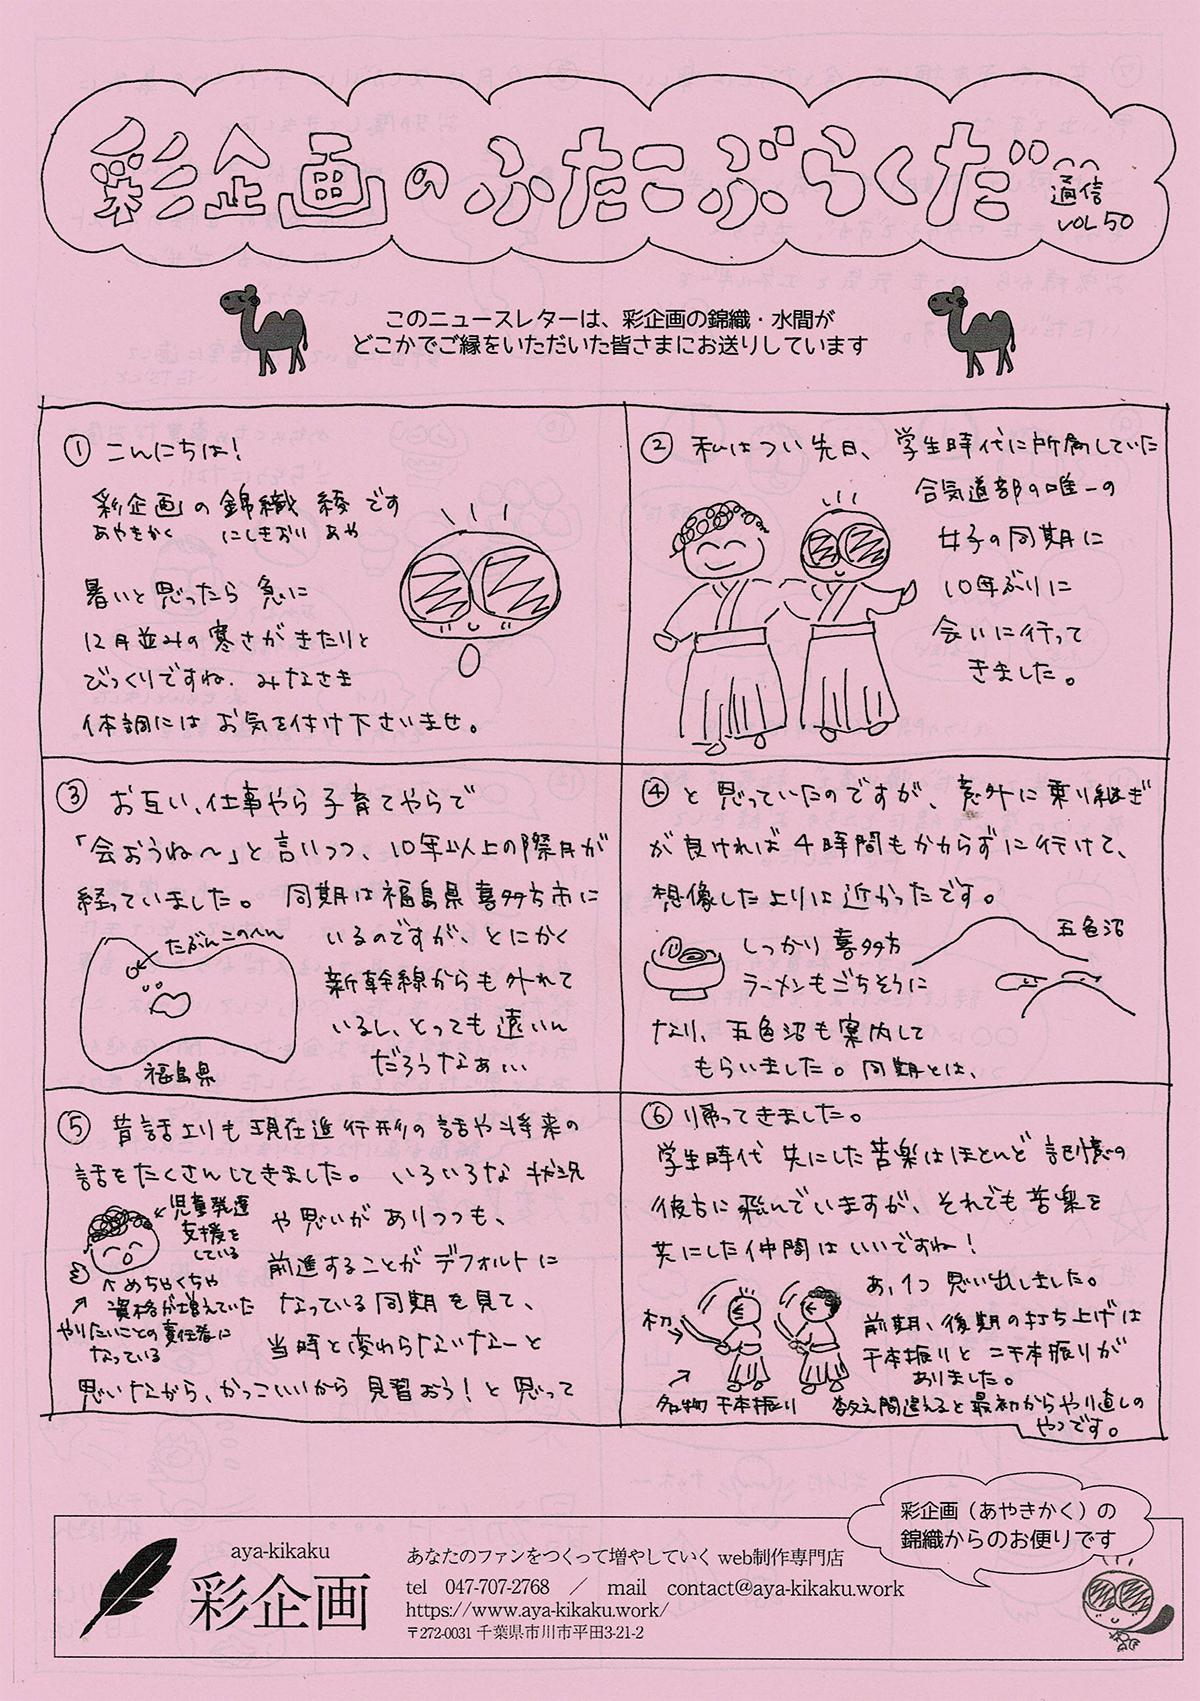 彩企画のふたこぶらくだ
通信
VOL 50
このニュースレターは、彩企画の錦織・水間が
どこかでご縁をいただいた皆さまにお送りしています
① こんにちは！
彩企画の錦織 綾です
あやきかく にしきおり あや
暑いと思ったら 急に
12月並みの寒さがきたりと
びっくりですね. みなさま
体調には お気を付け下さいませ。
② 私はつい先日、学生時代に所属していた
合気道部の唯一の
女子の同期に
10年ぶりに
会いに行って
きました。
③ お互い、仕事やら子育てやらで
「会おうね〜」と言いつつ、10年以上の際月が
経っていました。 同期は福島県喜多方市に
たぶんこのへん
いるのですが、とにかく
新幹線からも外れて
いるし、とっても遠いん
だろうなぁ…
福島県
④ と思っていたのですが、意外に乗り継ぎ
が良ければ 4時間もかからずに行けて、
想像したよりは近かったです。
五色沼
しっかり 喜多方
ラーメンもごちそうに
なり、五色沼も案内して
もらいました。同期とは、
⑤ 昔話よりも現在進行形の話や将来の
話をたくさんしてきました。いろいろな 状況
児童発達
支援を
している
や思いがありつつも、
前進することがデフォルトに
めちゃくちゃ
資格が増えていた
なっている同期を見て、
やりたいことの責任者に
なっている
当時と変わらないなーと
思いながら、かっこいいから 見習おう！と思って
⑥ 帰ってきました。
学生時代 共にした苦楽はほとんど 記憶の
彼方に飛んでいますが、それでも苦楽を
共にした仲間はいいですね！
あ、1つ 思い出しました。
前期、後期の打ち上げは
千本振りと 二千本振りが
ありました。
木刀
名物 千本振り 数え間違えると最初からやり直しの
やつです。
彩企画（あやきかく）の
錦織からのお便りです
aya-kikaku
彩企画
あなたのファンをつくって増やしていく web制作専門店
tel 047-707-2768 ／ mail contact@aya-kikaku.work
https://www.aya-kikaku.work/
〒272-0031 千葉県市川市平田3-21-2